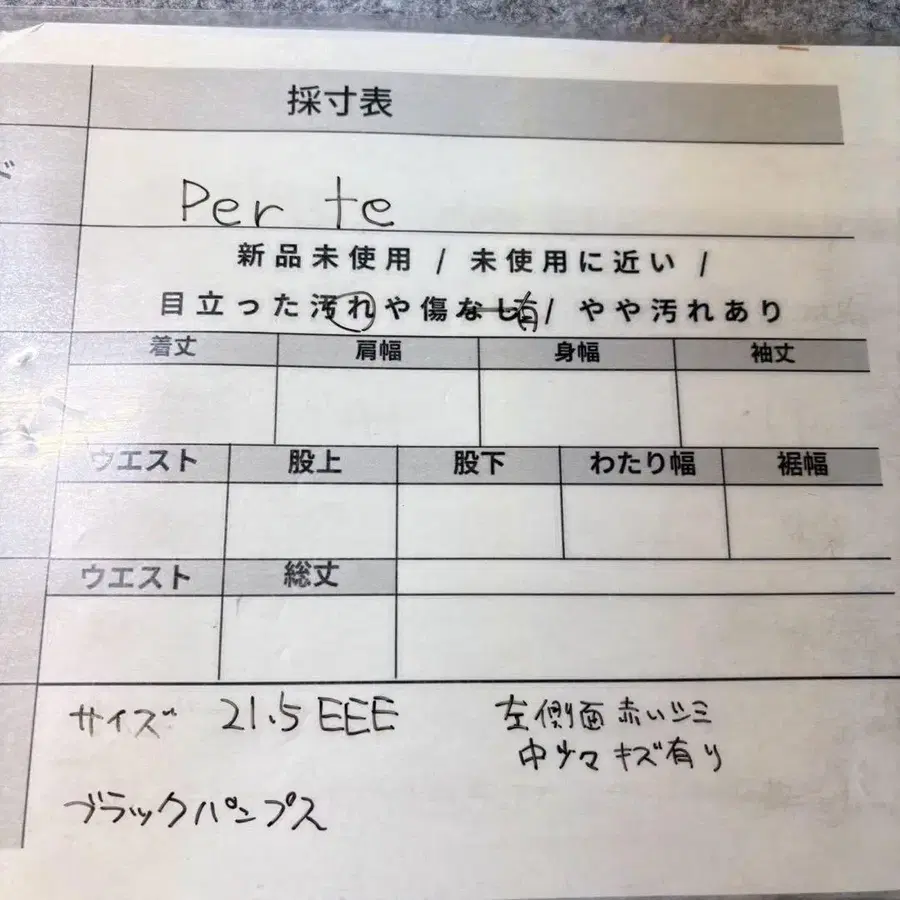 採寸表
Per te
新品未使用 / 未使用に近い /
目立った汚れや傷なし有/ やや汚れあり
着丈 肩幅 身幅 袖丈
ウエスト 股上 股下 わたり幅 裾幅
ウエスト 総丈
サイズ 21.5 EEE
左側面 赤いシミ
中少々 キズ有り
ブラックパンプス